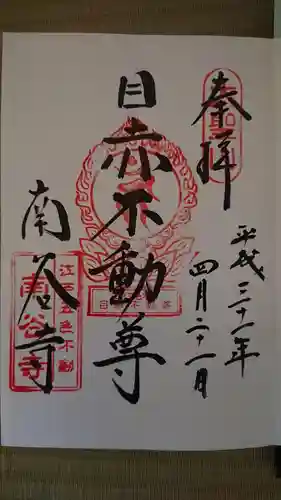 奉拝
平成二十一年
四月二十一日
目赤不動尊
南谷寺
江戸五色不動
南谷寺